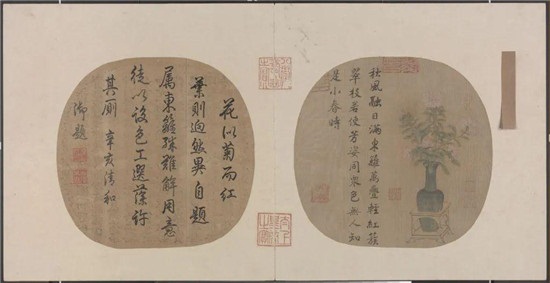 秋風融日滿東籬萬疊輕紅簇
翠枝若使芳姿同衆色無人知
是小春時
花似菊而紅
葉則迥然異自題
屬東籬殊難解用意
徒以設色工選藻許
其廁 辛亥清和
御題